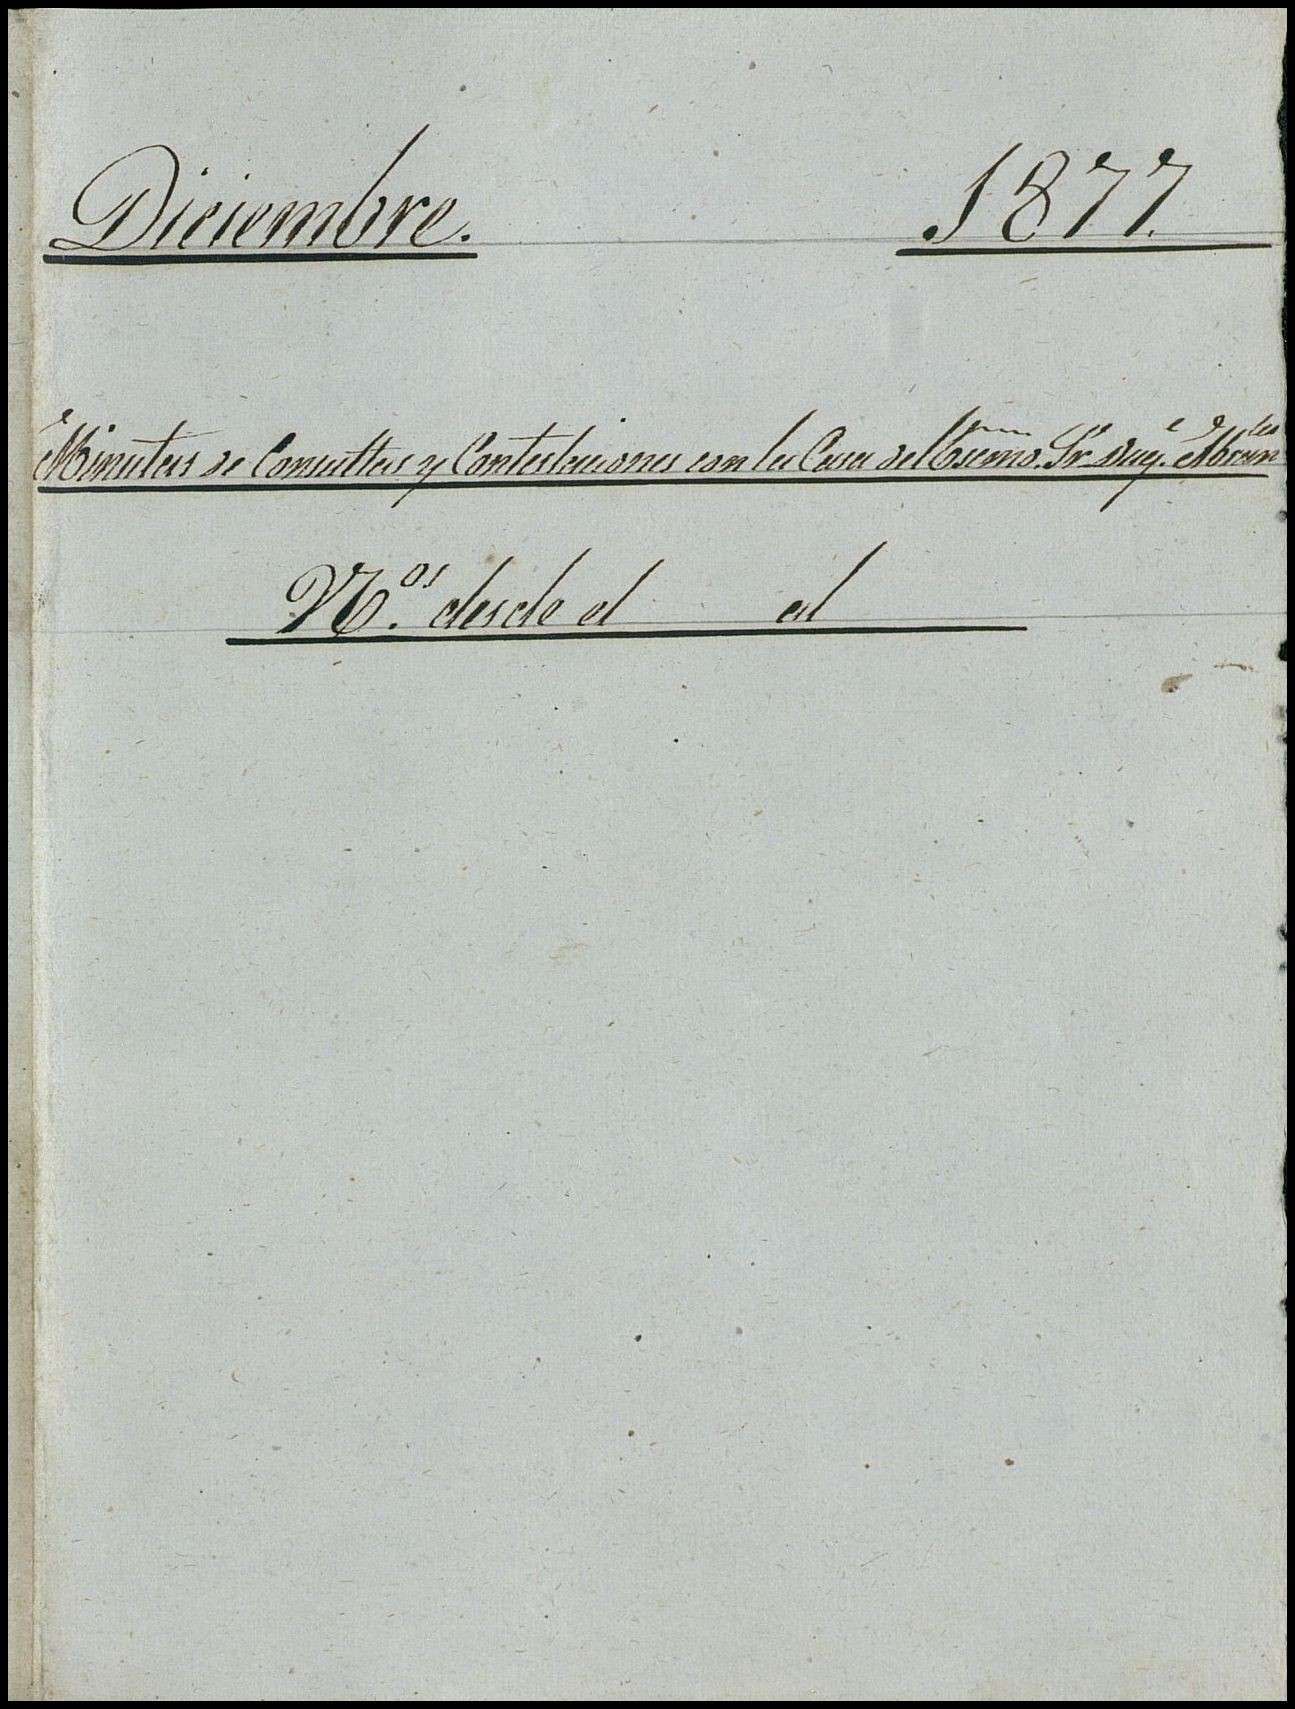 Diciembre. 1877.
Minutas de Consultas y Contestaciones con la Casa del Escmo. Sr. Duq.e Abran
N.os desde el al